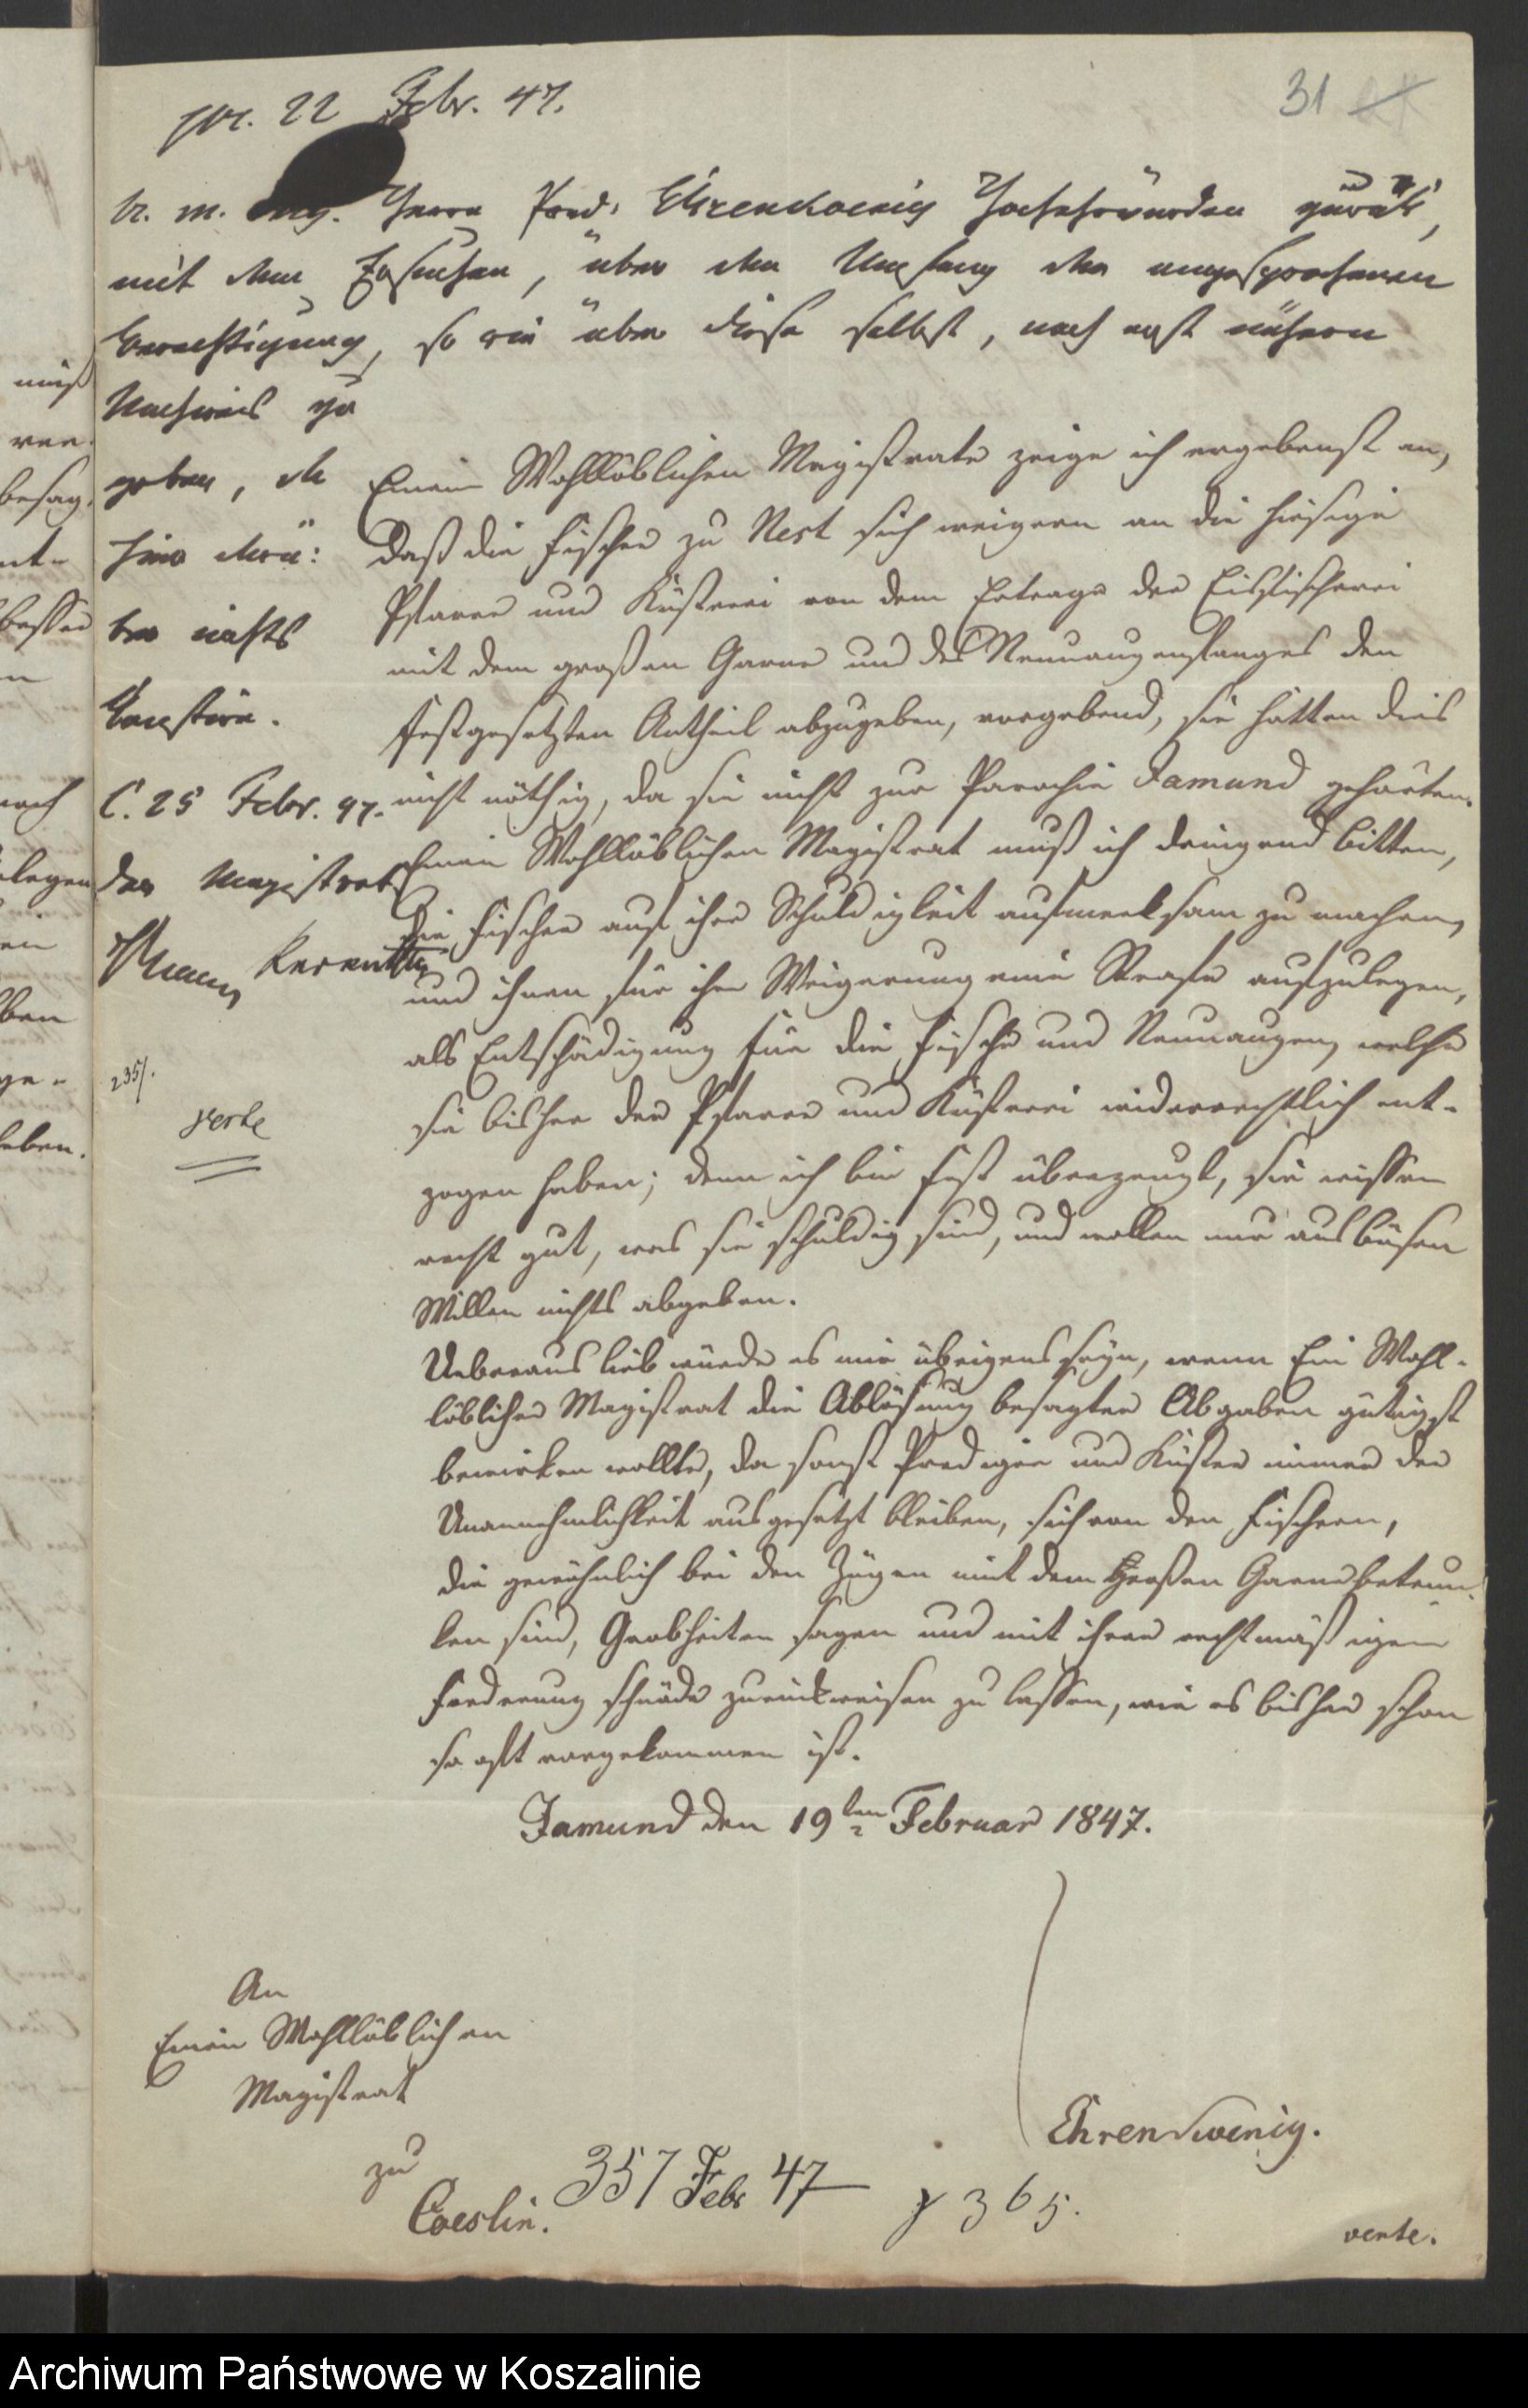 pr. 22 Febr. 47.
31
br. m. Herrn Pred. Ehrenkoenig Hochehrwürden zurük,
mit dem Ersuchen, über den Umfang der angesprochenen
Berechtigung, so wie über diese selbst, noch erst nähern
Nachweis zu
geben, da
hier darü:
ber nichts
constirt.
C. 25 Febr. 47.
Der Magistrat
235/.
verte
Einem Wohllöblichen Magistrate zeige ich ergebenst an,
daß die Fischer zu Nest sich weigern an die hiesige
Pfarre und Küsterei von dem Ertrage der Eisfischerei
mit dem großen Garne und des Neunaugenfanges den
festgesetzten Antheil abzugeben, vorgebend, sie hätten dies
nicht nöthig, da sie nicht zur Parochie Jamund gehörten.
Einen Wohllöblichen Magistrat muß ich dringend bitten,
die Fischer auf ihre Schuldigkeit aufmerksam zu machen,
und ihnen für ihre Weigerung eine Strafe aufzulegen,
als Entschädigung für die Fische und Neunaugen, welche
sie bisher der Pfarre und Küsterei widerrechtlich ent-
zogen haben; denn ich bin fest überzeugt, sie wissen
recht gut, was sie schuldig sind, und wollen nur aus bösen
Willen nichts abgeben.
Ueberaus lieb würde es mir übrigens seyn, wenn Ein Wohl-
löblicher Magistrat die Ablösung besagter Abgaben gütigst
bewirken wollte, da sonst Prediger und Küster immer der
Unannehmlichkeit ausgesetzt bleiben, sich von den Fischern,
die gewöhnlich bei den Zügen mit dem großen Garne betrun-
ken sind, Grobheiten sagen und mit ihrer rechtmäßigen
Forderung schnöde zurückweisen zu lassen, wie es bisher schon
so oft vorgekommen ist.
Jamund den 19ten Februar 1847.
An
Einen Wohllöblichen
Magistrat
zu
Coeslin.
Ehrenkoenig.
357 Febr 47
365.
verte.
Archiwum Państwowe w Koszalinie